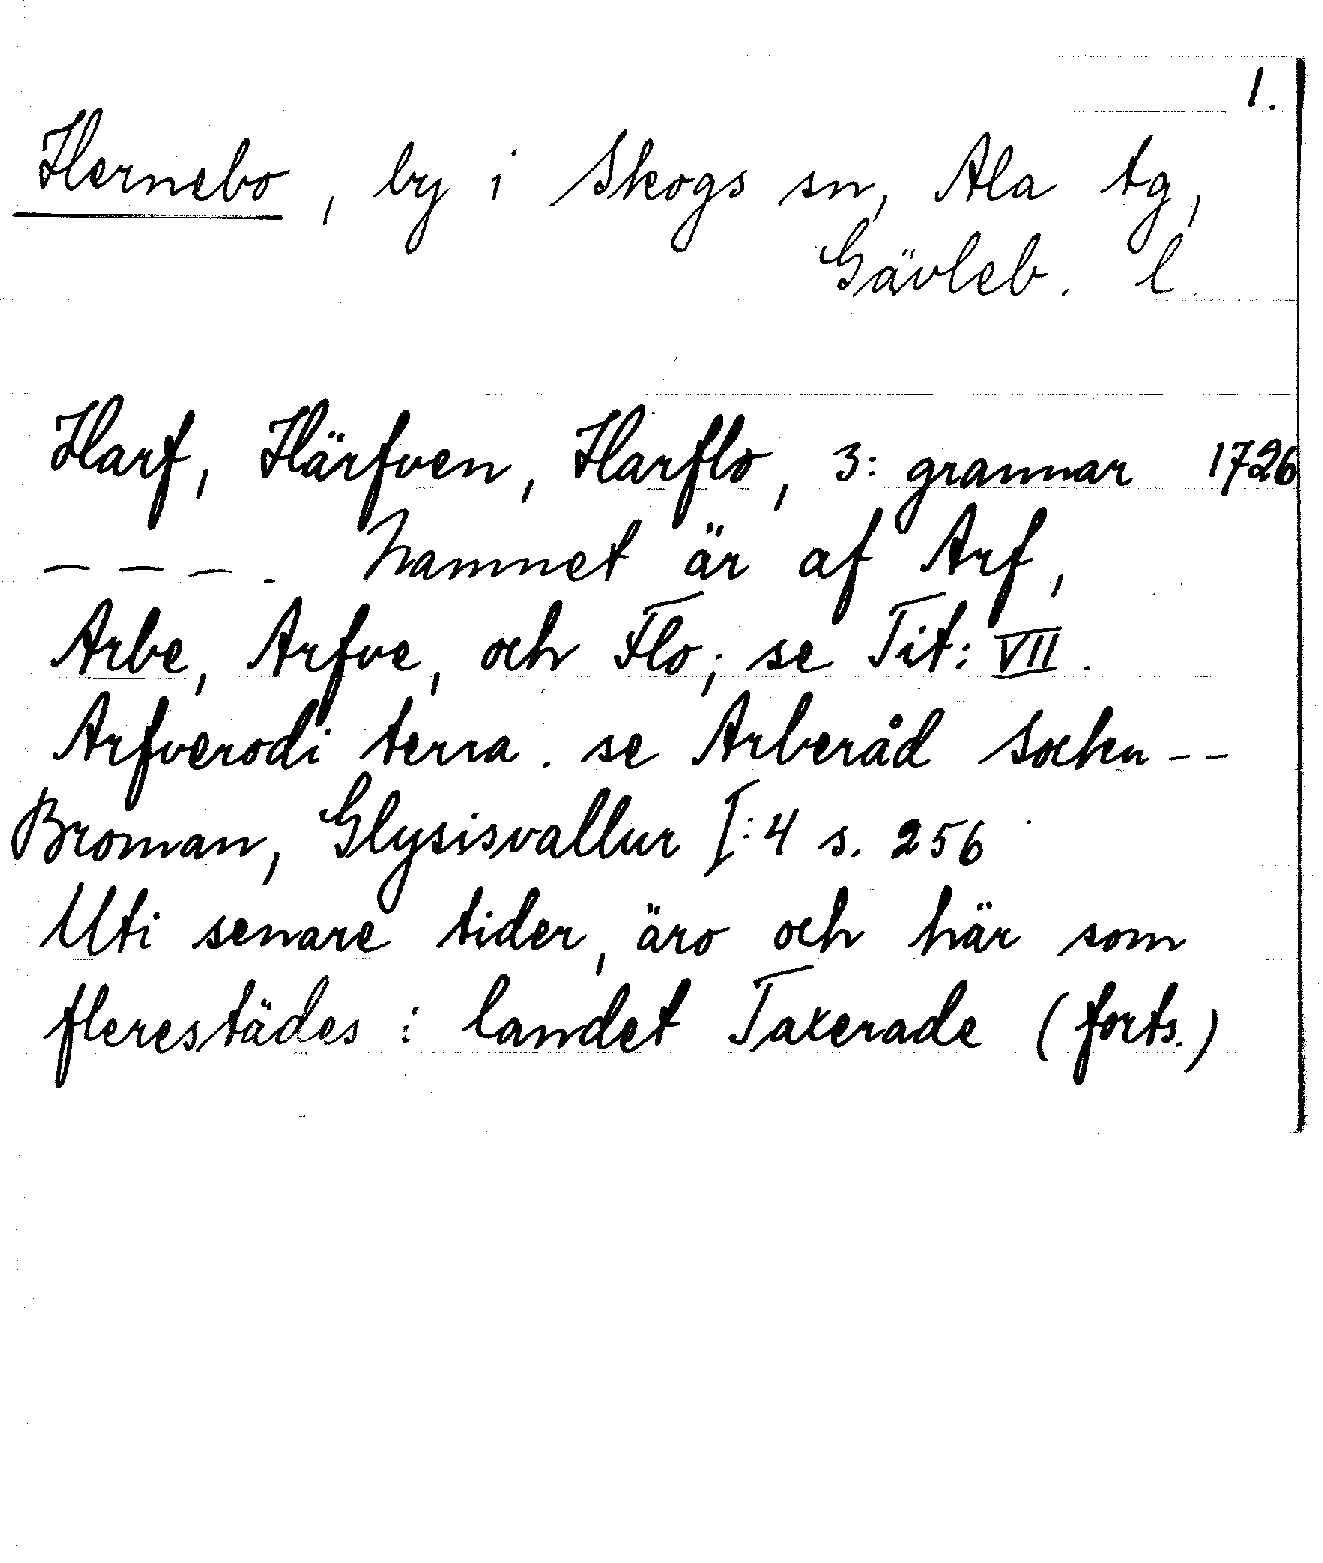 1.
Hernebo, by i Skogs sn, Ala tg,
Gävleb. l.
Harf, Härfven, Harflo, 3: grannar 1726
- - - . Namnet är af Arf,
Arbe, Arfve, och Flo; se Tit: VII.
Arfverodi terra. se Arberåd Sockn - -
Broman, Glysisvallur I:4 s. 256
Uti senare tider, äro och här som
flerestädes i landet Taxerade (forts.)